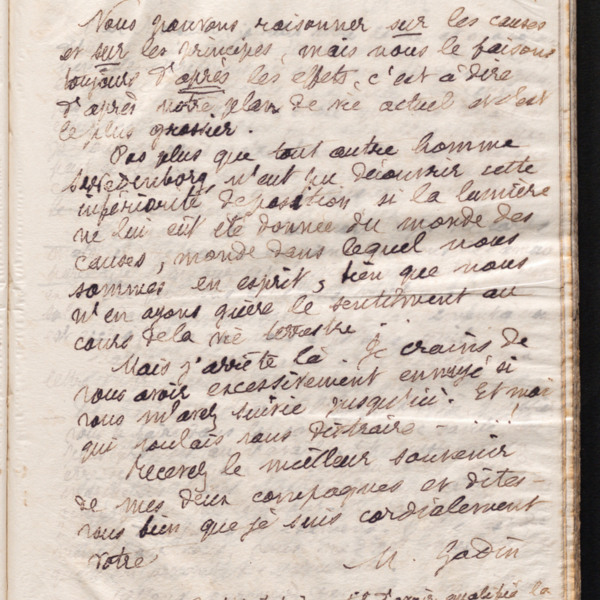 Nous pouvons raisonner sur les causes
et sur les principes, mais nous le faisons
toujours d'après les effets, c'est à dire
d'après notre plan de vie actuel et c'est
le plus grossier.
Pas plus que tout autre homme
Swedenborg, n'eut pu découvrir cette
infériorité de position si la lumière
ne lui eût été donnée du monde des
causes, monde dans lequel nous
sommes en esprit, bien que nous
n'en ayons guère le sentiment au
cours de la vie terrestre.
Mais j'arrête là. Je crains de
vous avoir excessivement ennuyé si
vous m'avez suivie jusqu'ici. Et moi
qui voulais vous distraire - . . . !
Recevez le meilleur souvenir
de mes deux compagnes et dites-
vous bien que je suis cordialement
votre
M. Godin
qualifié la